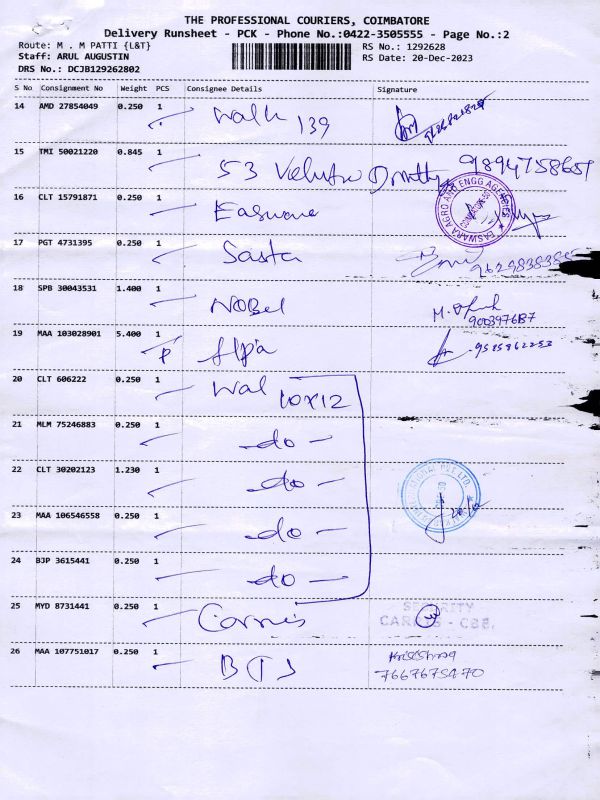 THE PROFESSIONAL COURIERS, COIMBATORE
Delivery Runsheet - PCK - Phone No.:0422-3505555 - Page No.:2
Route: M . M PATTI {L&T}
RS No.: 1292628
Staff: ARUL AUGUSTIN
RS Date: 20-Dec-2023
DRS No.: DCJB129262802
S No Consignment No Weight PCS Consignee Details Signature
14 AMD 27854049 0.250 1 walk 139
15 TMI 50021220 0.845 1 53 9894758651
16 CLT 15791871 0.250 1 Easware
EASWARA AGRO AND ENGG AGENCIES
17 PGT 4731395 0.250 1 Sasta 9629838385
18 SPB 30043531 1.400 1 NOBel M.
19 MAA 103028901 5.400 1 Alpa 9525862253
20 CLT 606222 0.250 1 Wal 10x12
21 MLM 75246883 0.250 1 -do-
22 CLT 30202123 1.230 1 -do-
23 MAA 106546558 0.250 1 -do-
24 BJP 3615441 0.250 1 -do-
25 MYD 8731441 0.250 1 SECURITY
26 MAA 107751017 0.250 1 7667675470